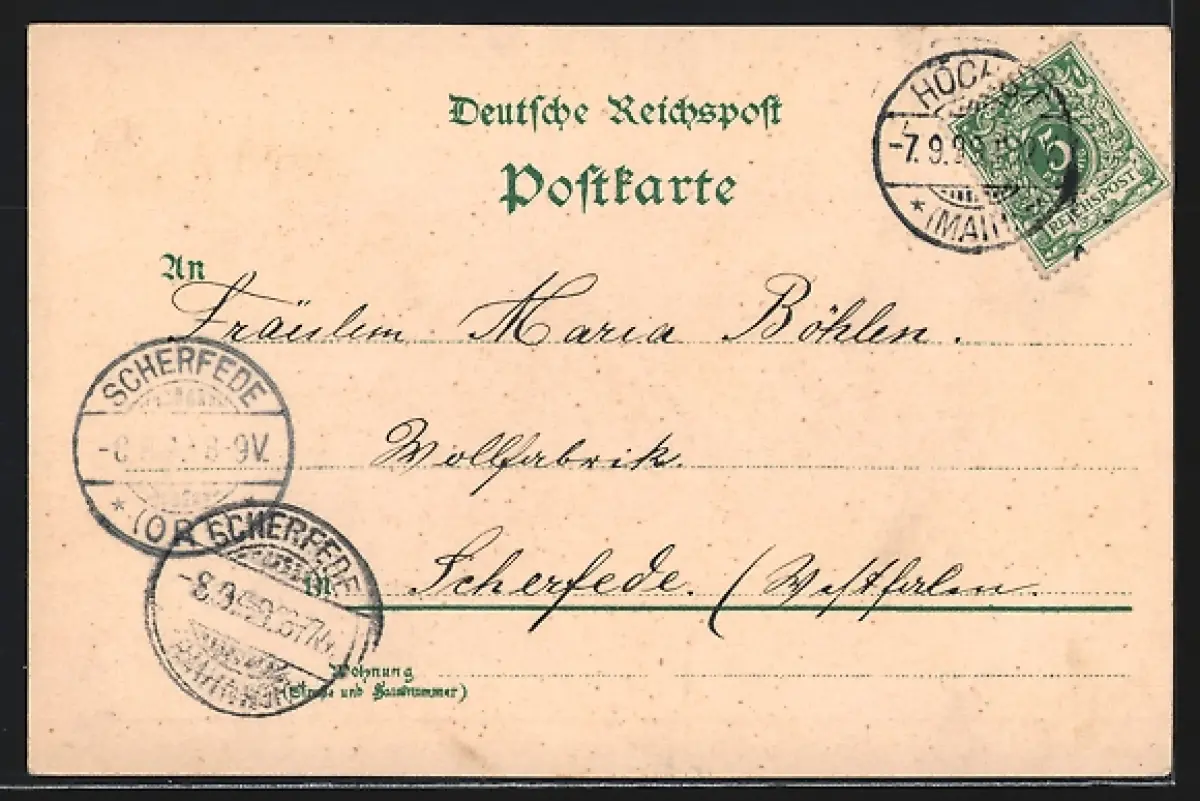 Deutsche Reichspost
Postkarte
HÖCHST
-7.9.99.
* (MAIN)
5
REICHSPOST
An
Fräulein Maria Böhlen.
SCHERFEDE
8-9V.
*
Wollfabrik.
SCHERFEDE
-8.9.99.
in Scherfede. (Westfalen.
Wohnung
(Straße und Hausnummer)